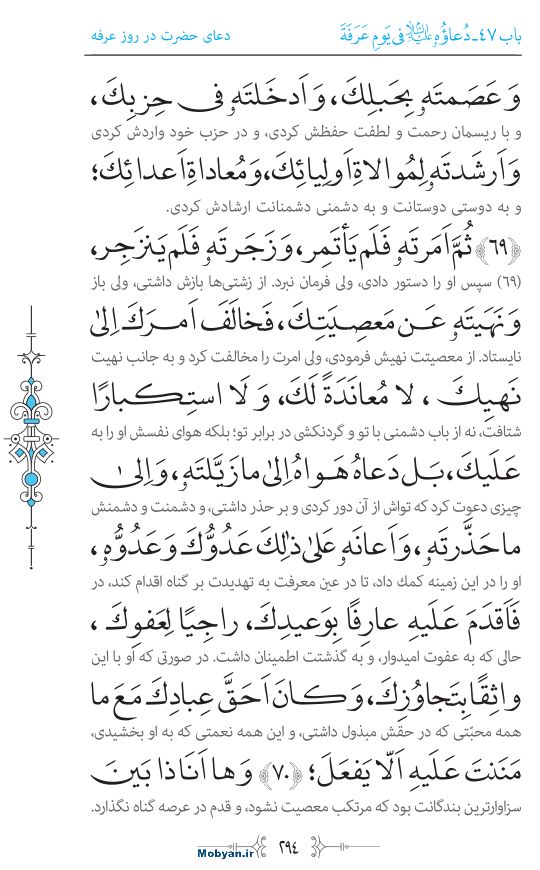 باب ۴۷ـ دُعاؤُهُ علیه‌السلام فی یَومِ عَرَفَةَ
دعای حضرت در روز عرفه
وَ عَصَمتَهُ بِحَبلِكَ، وَ اَدخَلتَهُ فی حِزبِكَ،
و با ریسمان رحمت و لطفت حفظش کردی، و در حزب خود واردش کردی
وَ اَرشَدتَهُ لِمُوالاةِ اَولِیائِكَ، وَ مُعاداةِ اَعدائِكَ؛
و به دوستی دوستانت و به دشمنی دشمنانت ارشادش کردی.
﴿۶۹﴾ ثُمَّ اَمَرتَهُ فَلَم یَأتَمِر، وَ زَجَرتَهُ فَلَم یَنزَجِر،
(۶۹) سپس او را دستور دادی، ولی فرمان نبرد. از زشتی‌ها بازش داشتی، ولی باز
وَ نَهَیتَهُ عَن مَعصِیَتِكَ، فَخالَفَ اَمرَكَ اِلیٰ
نایستاد. از معصیتت نهیش فرمودی، ولی امرت را مخالفت کرد و به جانب نهیت
نَهیِكَ ، لا مُعانَدَةً لَكَ، وَ لَا استِکبارًا
شتافت، نه از باب دشمنی با تو و گردنکشی در برابر تو؛ بلکه هوای نفسش او را به
عَلَیكَ، بَل دَعاهُ هَواهُ اِلیٰ ما زَیَّلتَهُ، وَ اِلیٰ
چیزی دعوت کرد که تواش از آن دور کردی و بر حذر داشتی، و دشمنت و دشمنش
ما حَذَّرتَهُ، وَ اَعانَهُ عَلیٰ ذٰلِكَ عَدُوُّكَ وَ عَدُوُّهُ،
او را در این زمینه کمك داد، تا در عین معرفت به تهدیدت بر گناه اقدام کند، در
فَاَقدَمَ عَلَیهِ عارِفًا بِوَعیدِكَ، راجِیًا لِعَفوِكَ ،
حالی که به عفوت امیدوار، و به گذشتت اطمینان داشت. در صورتی که او با این
واثِقًا بِتَجاوُزِكَ، وَ کانَ اَحَقَّ عِبادِكَ مَعَ ما
همه محبّتی که در حقش مبذول داشتی، و این همه نعمتی که به او بخشیدی،
مَنَنتَ عَلَیهِ اَلّا یَفعَلَ؛ ﴿۷۰﴾ وَ ها اَنَا ذا بَینَ
سزاوارترین بندگانت بود که مرتکب معصیت نشود، و قدم در عرصه گناه نگذارد.
۲۹۴
Mobyan.ir